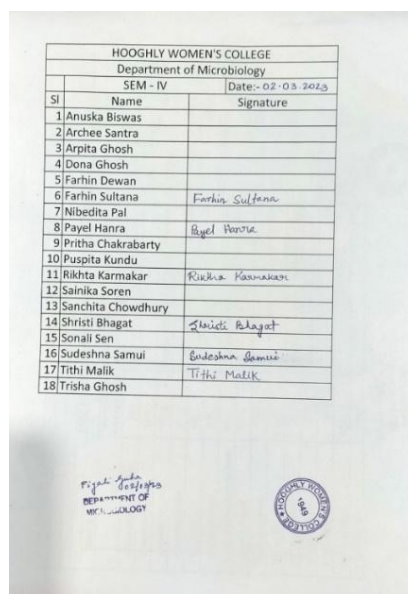 HOOGHLY WOMEN'S COLLEGE
Department of Microbiology
SEM - IV Date:- 02-03-2023
Sl Name Signature
1 Anuska Biswas
2 Archee Santra
3 Arpita Ghosh
4 Dona Ghosh
5 Farhin Dewan
6 Farhin Sultana Farhin Sultana
7 Nibedita Pal
8 Payel Hanra Payel Hanra
9 Pritha Chakrabarty
10 Puspita Kundu
11 Rikhta Karmakar Rikhta Karmakar
12 Sainika Soren
13 Sanchita Chowdhury
14 Shristi Bhagat Shristi Bhagat
15 Sonali Sen
16 Sudeshna Samui Sudeshna Samui
17 Tithi Malik Tithi Malik
18 Trisha Ghosh
02/03/23
DEPARTMENT OF
MICROBIOLOGY
HOOGHLY WOMEN'S COLLEGE
1949